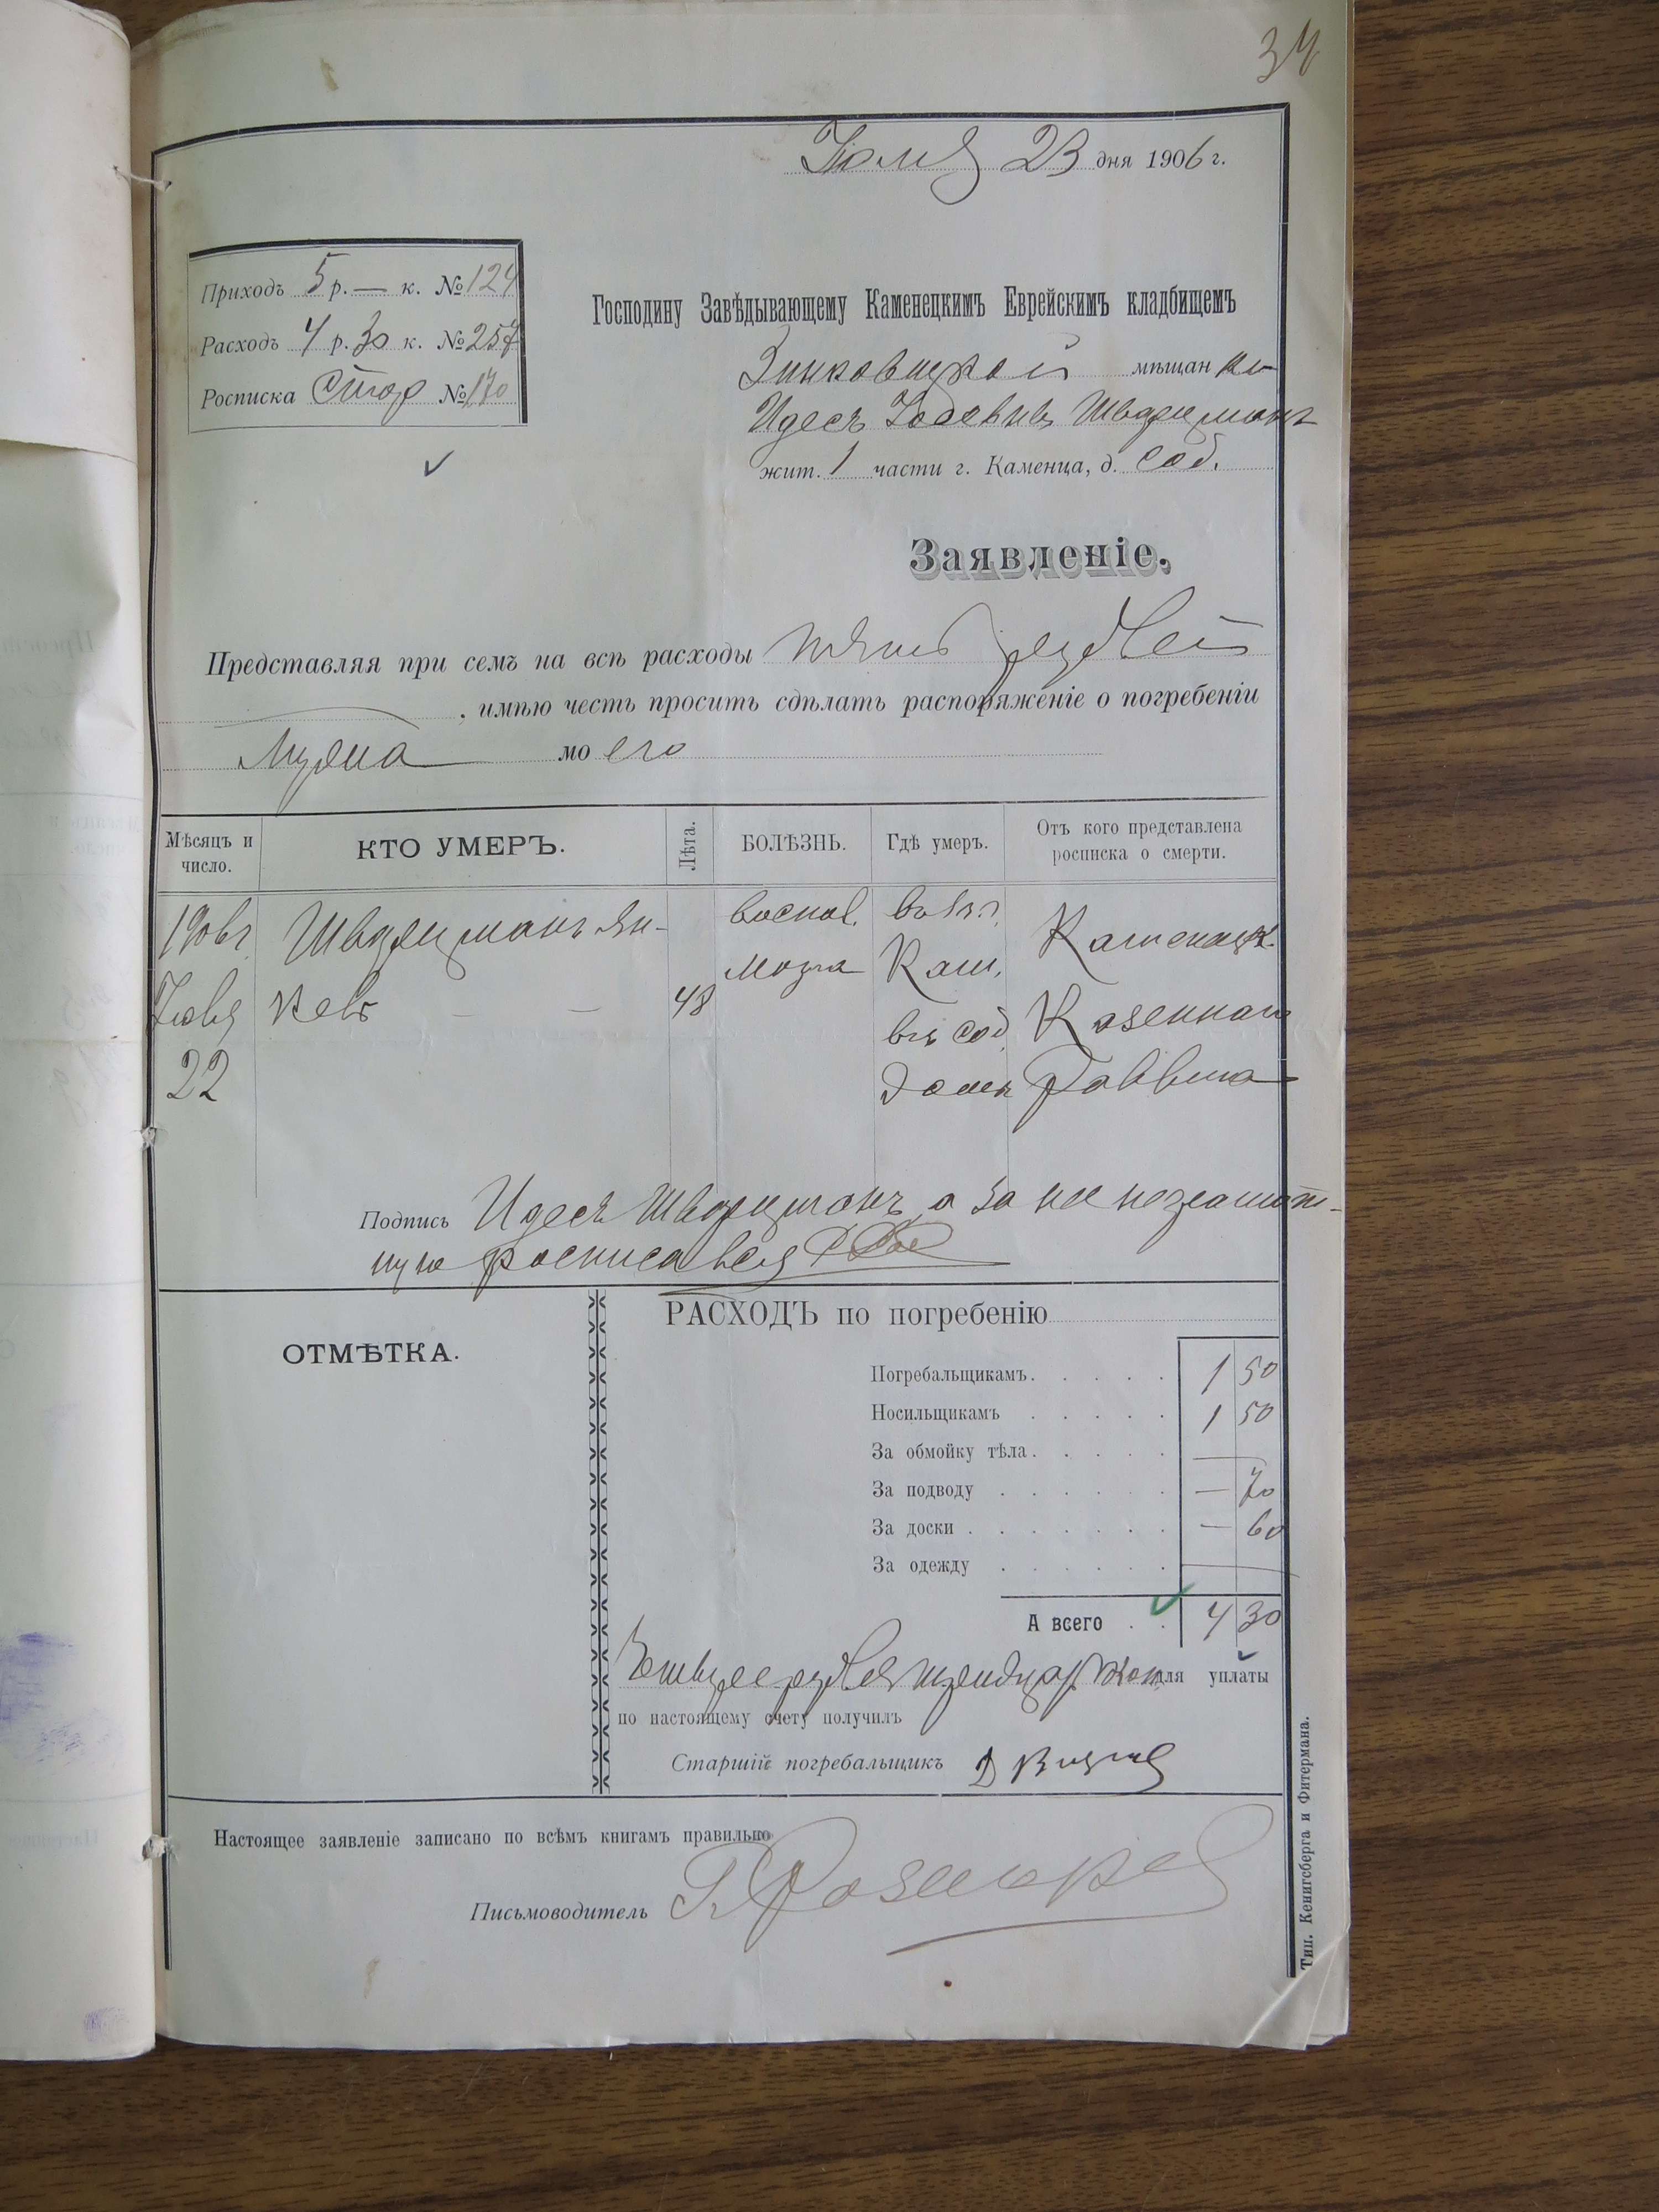 34
Іюля 23 дня 1906 г.
Приходъ 5 р. — к. № 124
Расходъ 4 р. 30 к. № 257
Росписка Стар № 170
Господину Завѣдывающему Каменецкимъ Еврейскимъ кладбищемъ
Зинковецкой мѣщанки
Идесъ Шварцманъ
жит. 1 части г. Каменца, д. соб.
Заявленіе.
Представляя при семъ на всѣ расходы пять рублей
, имѣю честь просить сдѣлать распоряженіе о погребеніи
мужа моего
Мѣсяцъ и число.
КТО УМЕРЪ.
Лѣта.
БОЛѢЗНЬ.
Гдѣ умеръ.
Отъ кого представлена росписка о смерти.
1906 г. Шварцманъ Ян- воспал. въ г. Каменецк.
кевъ — — 48 мозга Кам. Казеннаго
22 въ соб. домѣ Раввина
Подпись Идесъ Шварцманъ, а за нее неграмот-
ную росписался
ОТМѢТКА.
РАСХОДЪ по погребенію
Погребальщикамъ. 1 50
Носильщикамъ 1 50
За обмойку тѣла. —
За подводу — 70
За доски — 60
За одежду —
А всего 4 30
Четыре рубля тридцать коп для уплаты
по настоящему счету получилъ
Старшій погребальщикъ Д
Настоящее заявленіе записано по всѣмъ книгамъ правильно
Письмоводитель
Тип. Кенигсберга и Фитермана.